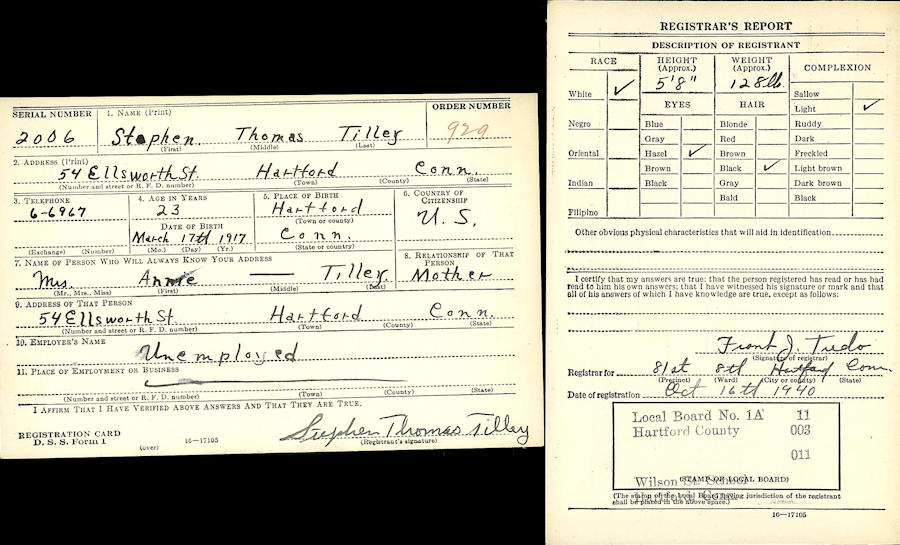 SERIAL NUMBER 1. NAME (Print) ORDER NUMBER
2006 Stephen Thomas Tilley 929
(First) (Middle) (Last)
2. ADDRESS (Print)
54 Ellsworth St. Hartford Conn.
(Number and street or R. F. D. number) (Town) (County) (State)
3. TELEPHONE 4. AGE IN YEARS 5. PLACE OF BIRTH 6. COUNTRY OF CITIZENSHIP
6-6967 23 Hartford U.S.
(Town or county)
DATE OF BIRTH
March 17th 1917 Conn.
(Exchange) (Number) (Mo.) (Day) (Yr.) (State or country)
7. NAME OF PERSON WHO WILL ALWAYS KNOW YOUR ADDRESS 8. RELATIONSHIP OF THAT PERSON
Mrs. Annie — Tilley Mother
(Mr., Mrs., Miss) (First) (Middle) (Last)
9. ADDRESS OF THAT PERSON
54 Ellsworth St. Hartford Conn.
(Number and street or R. F. D. number) (Town) (County) (State)
10. EMPLOYER'S NAME
Unemployed
11. PLACE OF EMPLOYMENT OR BUSINESS
(Number and street or R. F. D. number) (Town) (County) (State)
I AFFIRM THAT I HAVE VERIFIED ABOVE ANSWERS AND THAT THEY ARE TRUE.
REGISTRATION CARD
D. S. S. Form 1 16—17105 Stephen Thomas Tilley
(over) (Registrant's signature)
REGISTRAR'S REPORT
DESCRIPTION OF REGISTRANT
RACE HEIGHT (Approx.) WEIGHT (Approx.) COMPLEXION
5'8" 128 lb.
White ✓ EYES HAIR Sallow
Light ✓
Negro Blue Blonde Ruddy
Gray Red Dark
Oriental Hazel ✓ Brown Freckled
Brown Black ✓ Light brown
Indian Black Gray Dark brown
Bald Black
Filipino
Other obvious physical characteristics that will aid in identification
I certify that my answers are true; that the person registered has read or has had
read to him his own answers; that I have witnessed his signature or mark and that
all of his answers of which I have knowledge are true, except as follows:
Frank J.
(Signature of registrar)
Registrar for 81st 8th Hartford Conn.
(Precinct) (Ward) (City or county) (State)
Date of registration Oct 16th 1940
Local Board No. 1A 11
Hartford County 003
011
Wilson St. School
(STAMP OF LOCAL BOARD)
(The stamp of the Local Board having jurisdiction of the registrant
shall be placed in the above space.)
16—17105